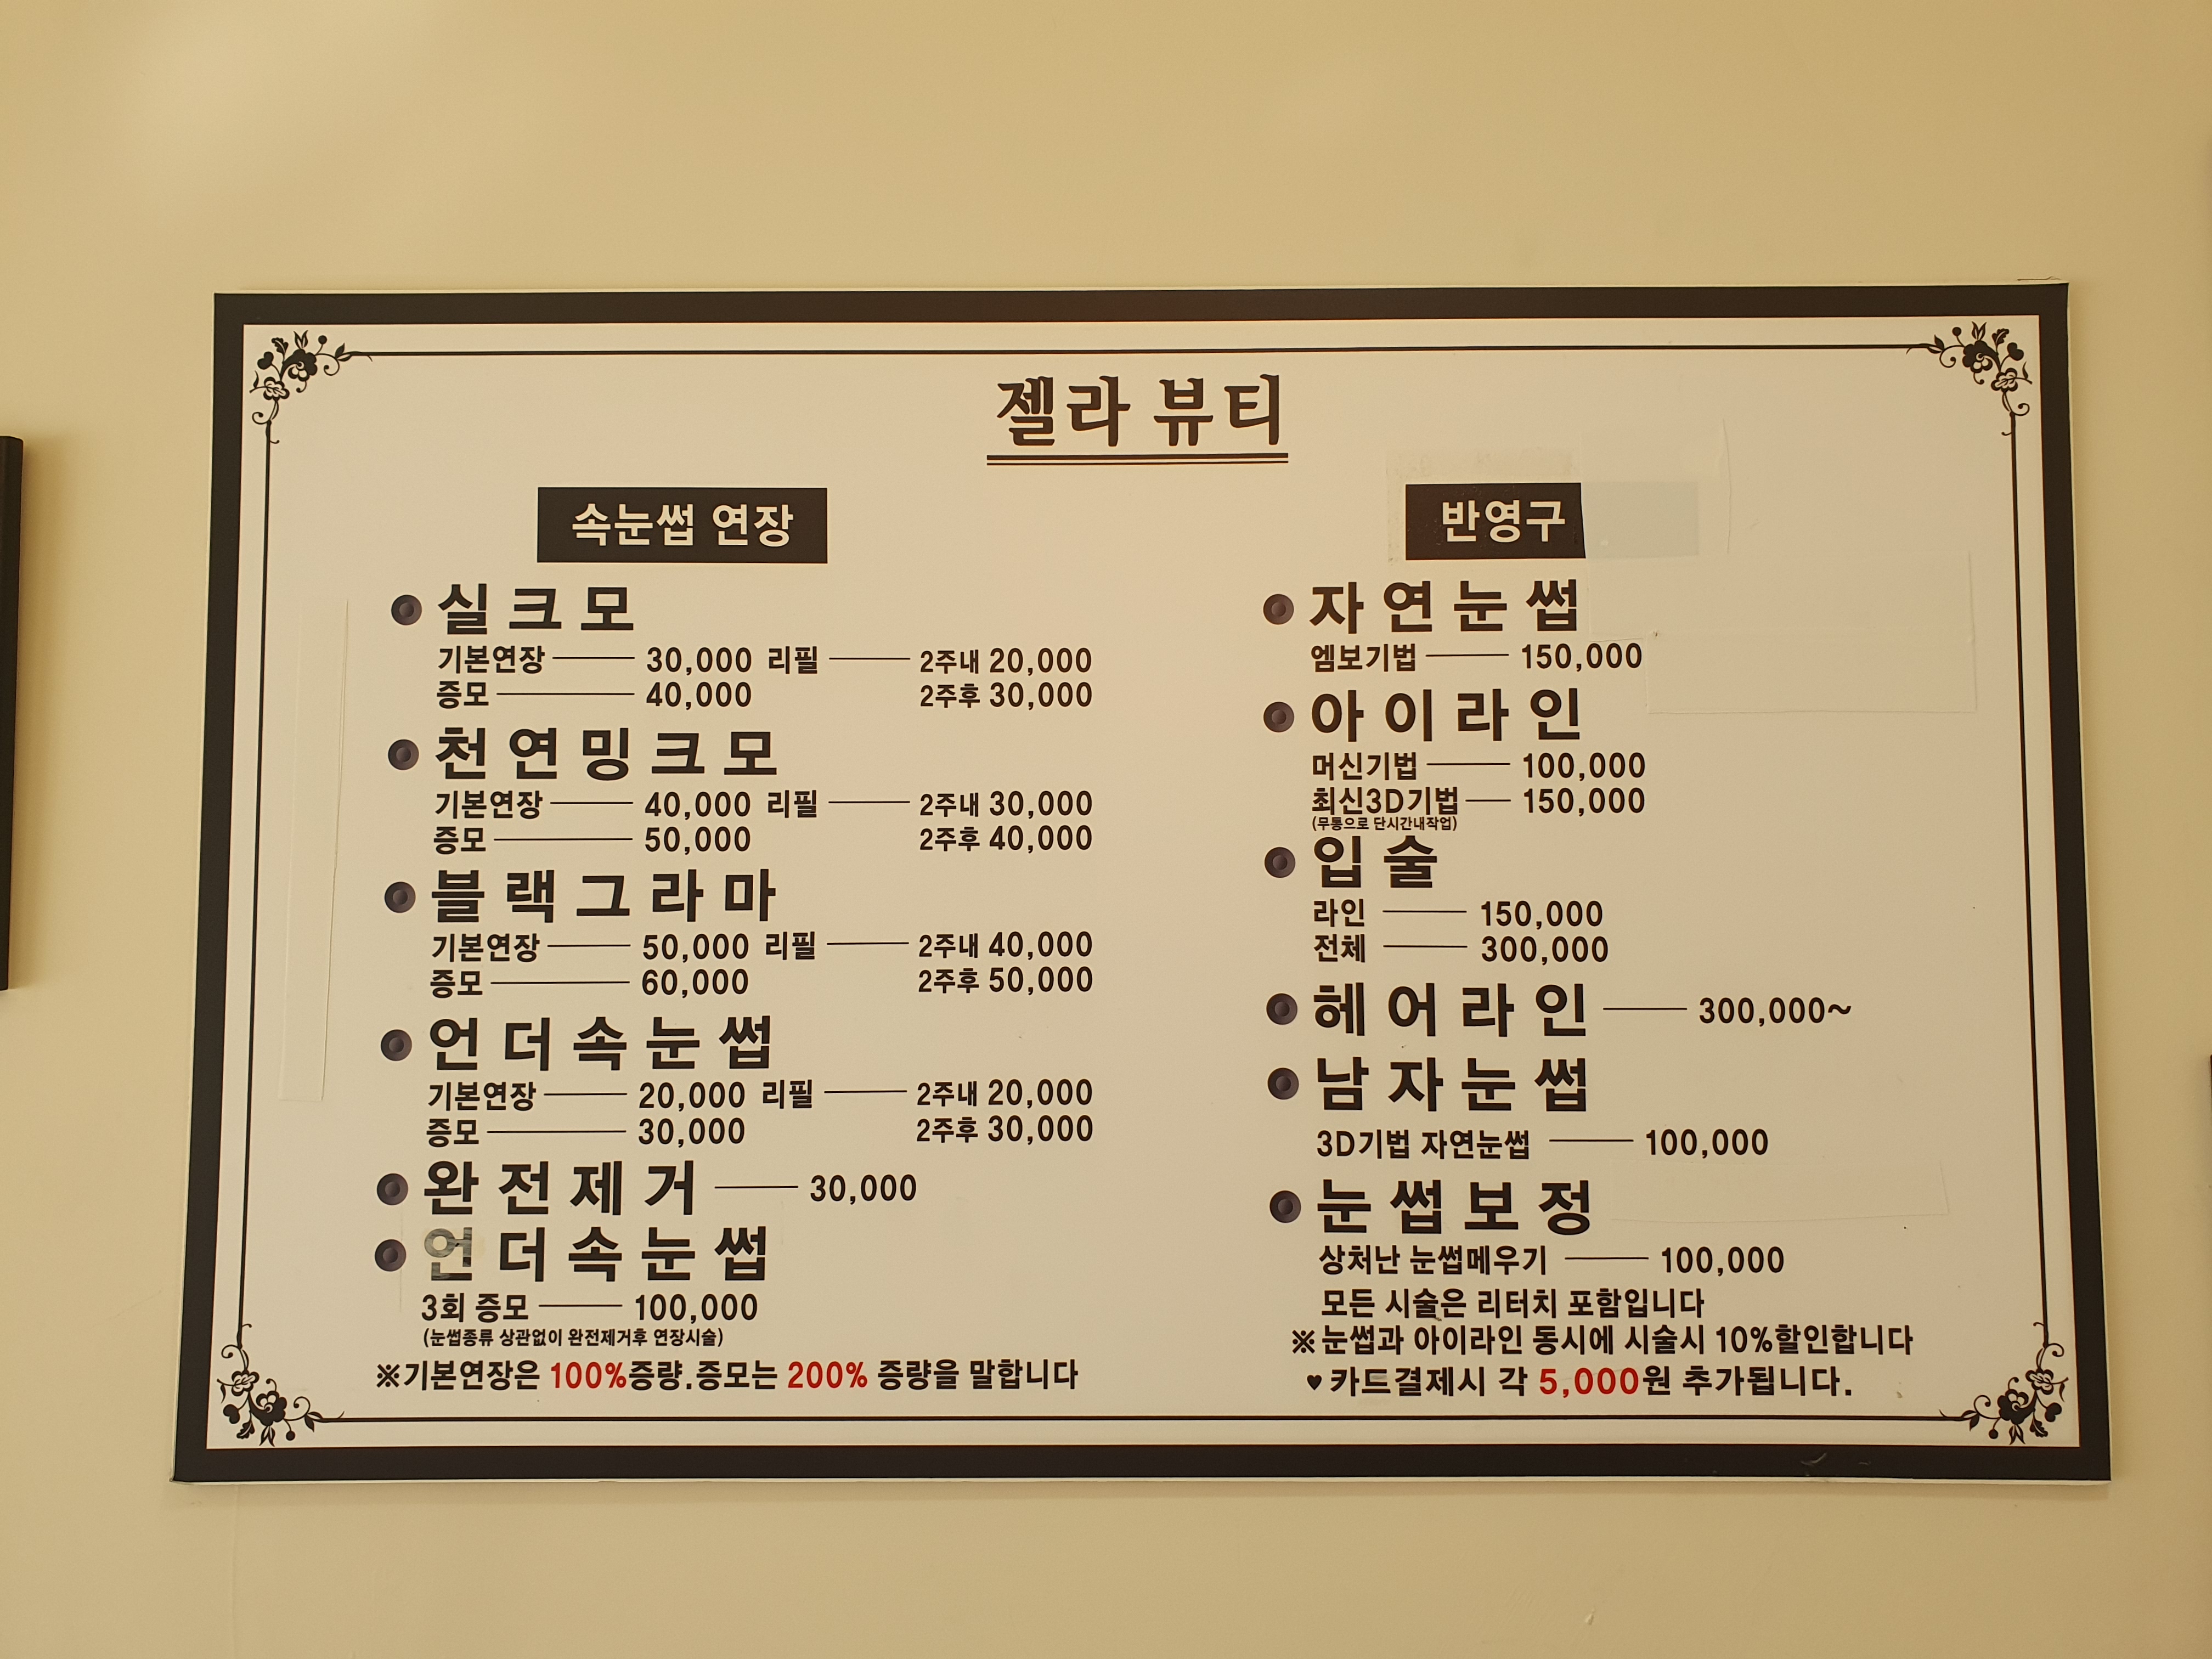 젤라 뷰티
속눈썹 연장
실크모
기본연장 30,000 리필 2주내 20,000
증모 40,000 2주후 30,000
천연밍크모
기본연장 40,000 리필 2주내 30,000
증모 50,000 2주후 40,000
블랙그라마
기본연장 50,000 리필 2주내 40,000
증모 60,000 2주후 50,000
언더속눈썹
기본연장 20,000 리필 2주내 20,000
증모 30,000 2주후 30,000
완전제거 30,000
언더속눈썹
3회 증모 100,000
(눈썹종류 상관없이 완전제거후 연장시술)
※기본연장은 100%증량.증모는 200% 증량을 말합니다
반영구
자연눈썹
엠보기법 150,000
아이라인
머신기법 100,000
최신3D기법 150,000
(무통으로 단시간내작업)
입술
라인 150,000
전체 300,000
헤어라인 300,000~
남자눈썹
3D기법 자연눈썹 100,000
눈썹보정
상처난 눈썹메우기 100,000
모든 시술은 리터치 포함입니다
※눈썹과 아이라인 동시에 시술시 10%할인합니다
♥카드결제시 각 5,000원 추가됩니다.